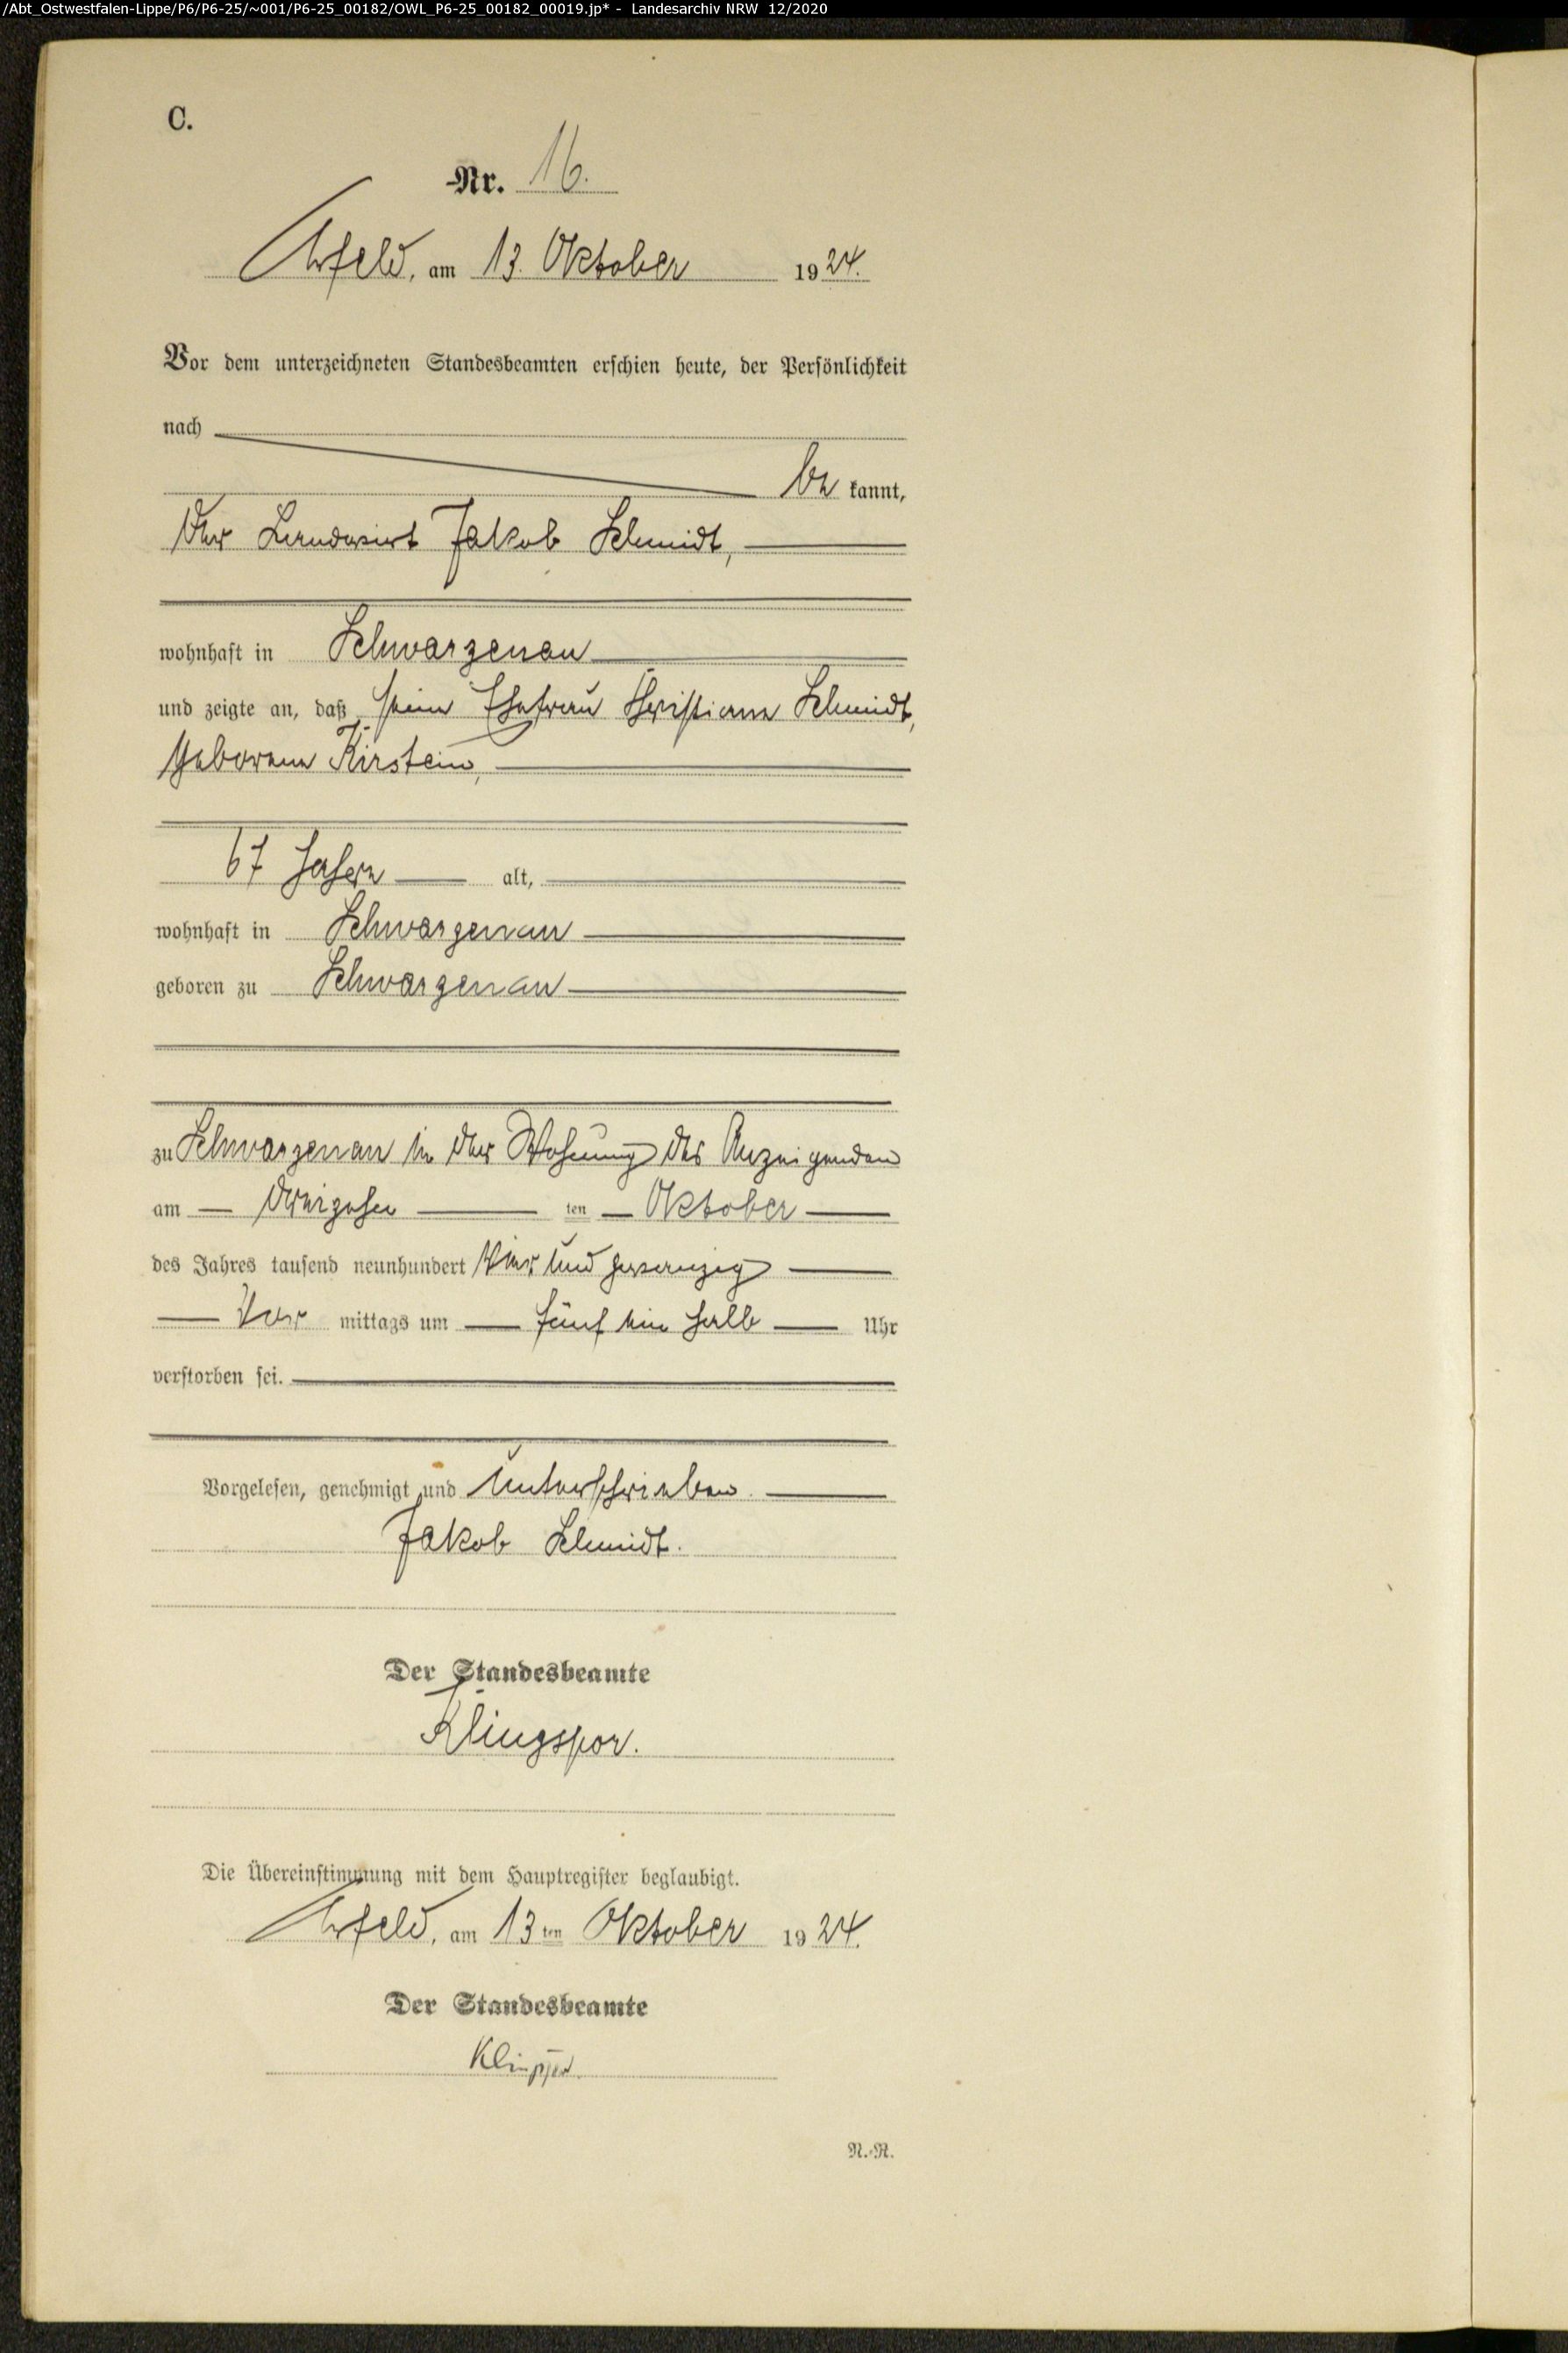 /Abt_Ostwestfalen-Lippe/P6/P6-25/~001/P6-25_00182/OWL_P6-25_00182_00019.jp* - Landesarchiv NRW 12/2020
C.
Nr. 16.
Arfeld, am 13. Oktober 1924.
Vor dem unterzeichneten Standesbeamten erschien heute, der Persönlichkeit
nach
be kannt,
der Landwirt Jakob Schmidt,
wohnhaft in Schwarzenau
und zeigte an, daß seine Ehefrau Christiane Schmidt,
geborene Kirstein,
67 Jahre alt,
wohnhaft in Schwarzenau
geboren zu Schwarzenau
zu Schwarzenau in der Wohnung des Anzeigenden
am dreizehn ten Oktober
des Jahres tausend neunhundert vier und zwanzig
Vor mittags um fünf ein halb Uhr
verstorben sei.
Vorgelesen, genehmigt und unterschrieben.
Jakob Schmidt.
Der Standesbeamte
Klingspor.
Die Übereinstimmung mit dem Hauptregister beglaubigt.
Arfeld, am 13ten Oktober 1924.
Der Standesbeamte
Klingspor.
N.-R.